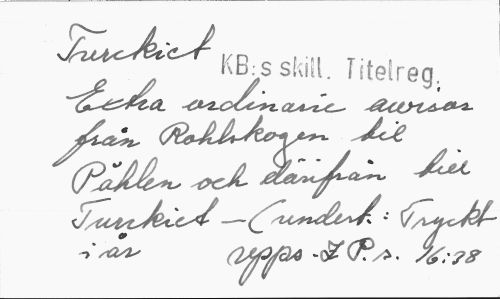 Turckiet
KB:s skill. Titelreg.
Extra ordinarie awisor
från Rohlskogen til
Påhlen och därifrån till
Turckiet — (undert.: Tryckt
i år repps. I P. s. 16:38